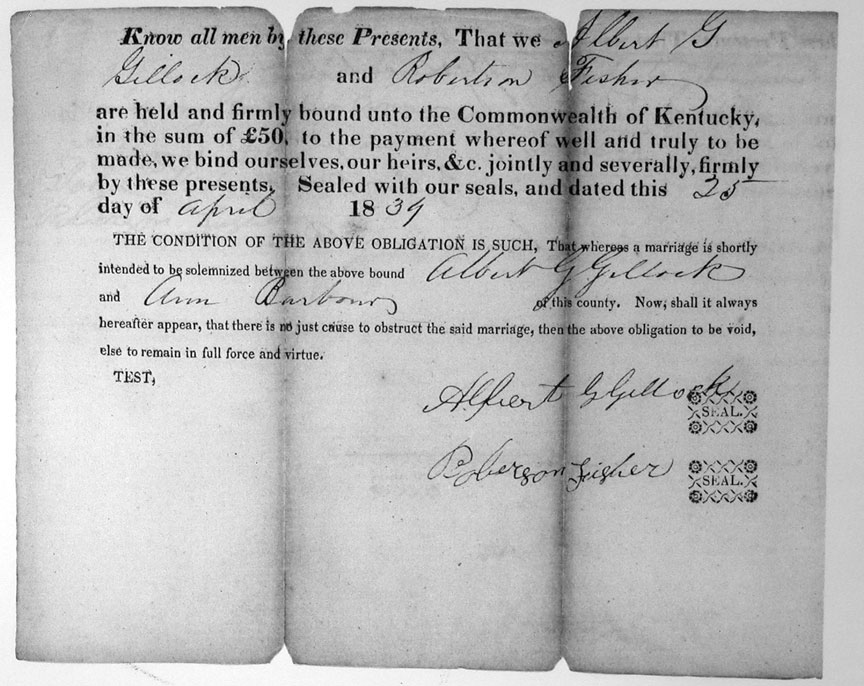 Know all men by these Presents, That we Albert G
Gillock and Robertson Fisher
are held and firmly bound unto the Commonwealth of Kentucky,
in the sum of £50, to the payment whereof well and truly to be
made, we bind ourselves, our heirs, &c. jointly and severally, firmly
by these presents. Sealed with our seals, and dated this 25
day of April 1839
THE CONDITION OF THE ABOVE OBLIGATION IS SUCH, That whereas a marriage is shortly
intended to be solemnized between the above bound Albert G Gillock
and Ann Barbour of this county. Now, shall it always
hereafter appear, that there is no just cause to obstruct the said marriage, then the above obligation to be void,
else to remain in full force and virtue.
TEST,
Albert G Gillock
SEAL.
Roberson Fisher
SEAL.